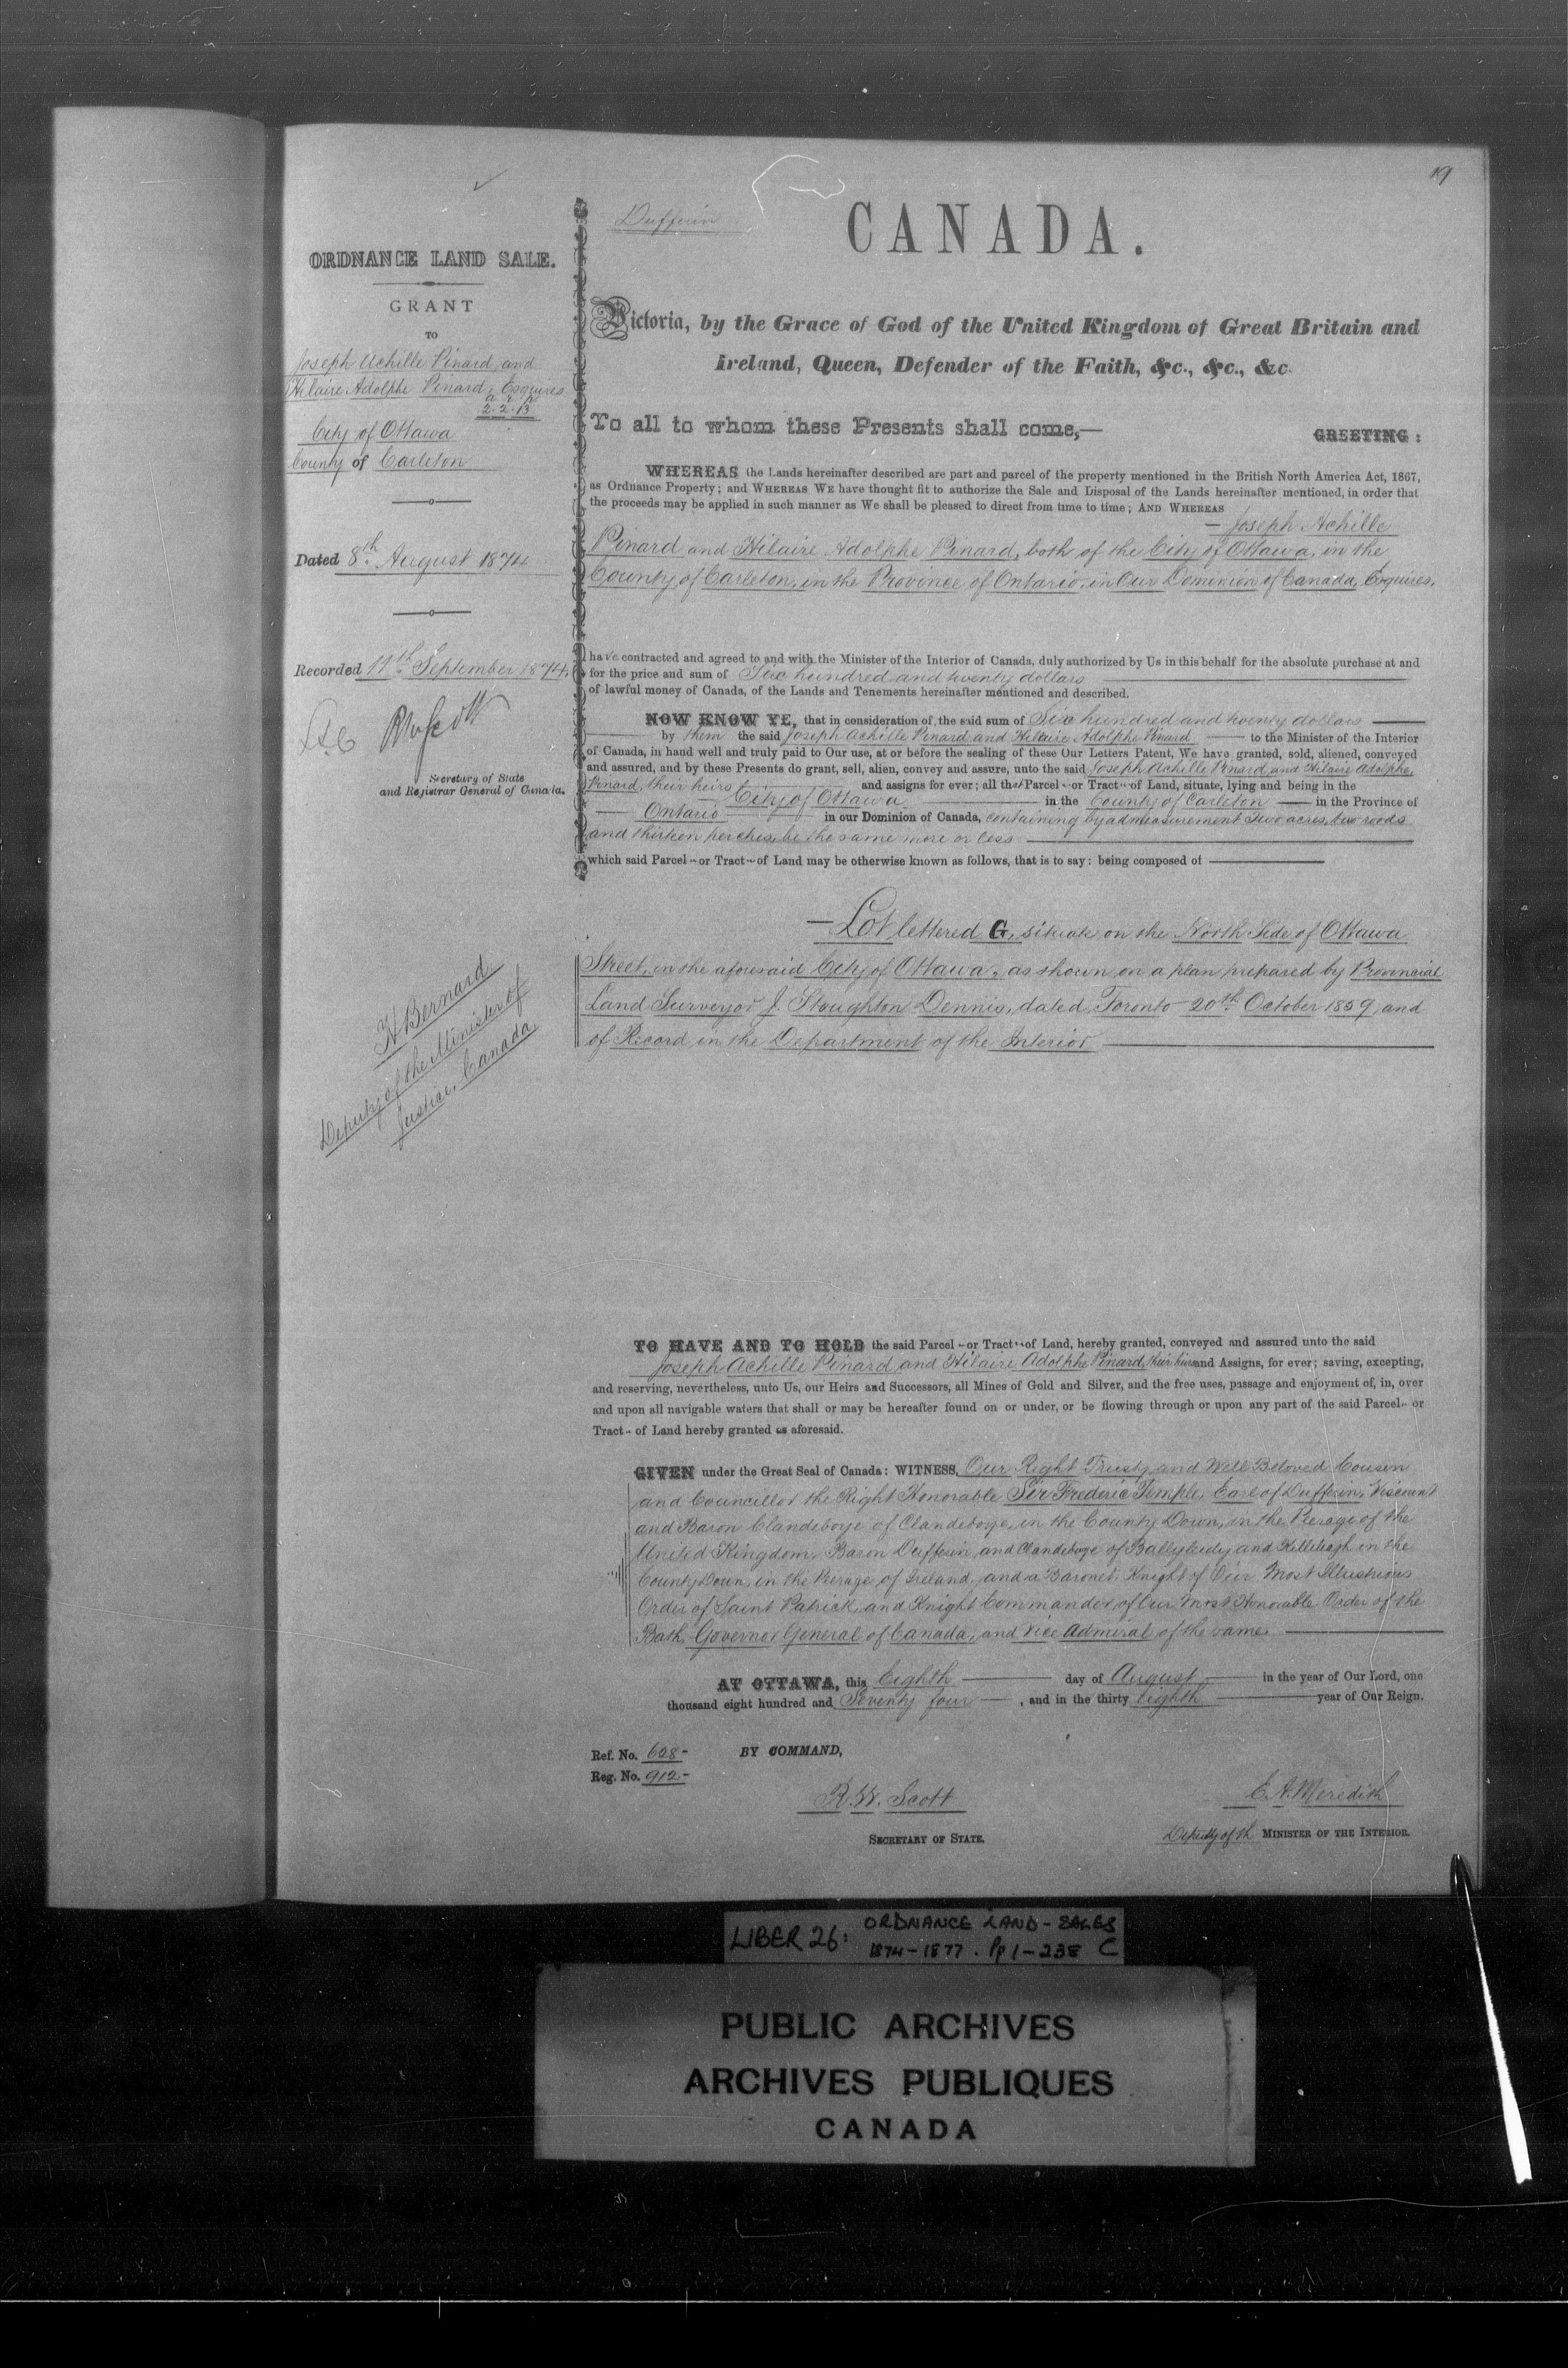 19
ORDNANCE LAND SALE.
GRANT
TO
Joseph Achille Pinard, and
Hilaire Adolphe Pinard, Esquires
a r p
2.2.13
City of Ottawa
County of Carleton
Dated 8th August 1874
Recorded 11th September 1874.
RWScott
Secretary of State
and Registrar General of Canada.
H Bernard
Deputy of the Minister of
Justice, Canada
Dufferin
CANADA.
Victoria, by the Grace of God of the United Kingdom of Great Britain and
Ireland, Queen, Defender of the Faith, &c., &c., &c.
To all to whom these Presents shall come,—
GREETING:
WHEREAS the Lands hereinafter described are part and parcel of the property mentioned in the British North America Act, 1867,
as Ordnance Property; and WHEREAS WE have thought fit to authorize the Sale and Disposal of the Lands hereinafter mentioned, in order that
the proceeds may be applied in such manner as We shall be pleased to direct from time to time; AND WHEREAS
— Joseph Achille
Pinard and Hilaire Adolphe Pinard, both of the City of Ottawa, in the
County of Carleton, in the Province of Ontario, in Our Dominion of Canada, Esquires,
have contracted and agreed to and with the Minister of the Interior of Canada, duly authorized by Us in this behalf for the absolute purchase at and
for the price and sum of Six hundred and twenty dollars
of lawful money of Canada, of the Lands and Tenements hereinafter mentioned and described.
NOW KNOW YE, that in consideration of the said sum of Six hundred and twenty dollars
by them the said Joseph Achille Pinard and Hilaire Adolphe Pinard to the Minister of the Interior
of Canada, in hand well and truly paid to Our use, at or before the sealing of these Our Letters Patent, We have granted, sold, aliened, conveyed
and assured, and by these Presents do grant, sell, alien, convey and assure, unto the said Joseph Achille Pinard and Hilaire Adolphe
Pinard, their heirs and assigns for ever; all that Parcel or Tract of Land, situate, lying and being in the
City of Ottawa in the County of Carleton in the Province of
Ontario in our Dominion of Canada, containing by admeasurement Two acres, two roods
and thirteen perches, be the same more or less
which said Parcel or Tract of Land may be otherwise known as follows, that is to say: being composed of
— Lot lettered G, situate on the North Side of Ottawa
Street, in the aforesaid City of Ottawa, as shown on a plan prepared by Provincial
Land Surveyor J. Stoughton Dennis, dated, Toronto 20th October 1859, and
of Record in the Department of the Interior
TO HAVE AND TO HOLD the said Parcel or Tract of Land, hereby granted, conveyed and assured unto the said
Joseph Achille Pinard and Hilaire Adolphe Pinard, their heirs and Assigns, for ever; saving, excepting,
and reserving, nevertheless, unto Us, our Heirs and Successors, all Mines of Gold and Silver, and the free uses, passage and enjoyment of, in, over
and upon all navigable waters that shall or may be hereafter found on or under, or be flowing through or upon any part of the said Parcel or
Tract of Land hereby granted as aforesaid.
GIVEN under the Great Seal of Canada: WITNESS, Our Right Trusty and Well Beloved Cousin
and Councillor the Right Honorable Sir Frederic Temple, Earl of Dufferin, Viscount
and Baron Clandeboye of Clandeboye, in the County Down, in the Peerage of the
United Kingdom, Baron Dufferin and Clandeboye of Ballyleidy and Killeleagh in the
County Down, in the Peerage of Ireland, and a Baronet, Knight of Our Most Illustrious
Order of Saint Patrick, and Knight Commander of Our Most Honorable Order of the
Bath, Governor General of Canada, and Vice Admiral of the same.
AT OTTAWA, this Eighth day of August in the year of Our Lord, one
thousand eight hundred and Seventy four, and in the thirty eighth year of Our Reign.
Ref. No. 628-
BY COMMAND,
Reg. No. 912-
R. W. Scott
E. A. Meredith
SECRETARY OF STATE.
Deputy of th MINISTER OF THE INTERIOR.
LIBER 26: ORDNANCE LAND-SALES
1874-1877. Pp 1-238 C
PUBLIC ARCHIVES
ARCHIVES PUBLIQUES
CANADA